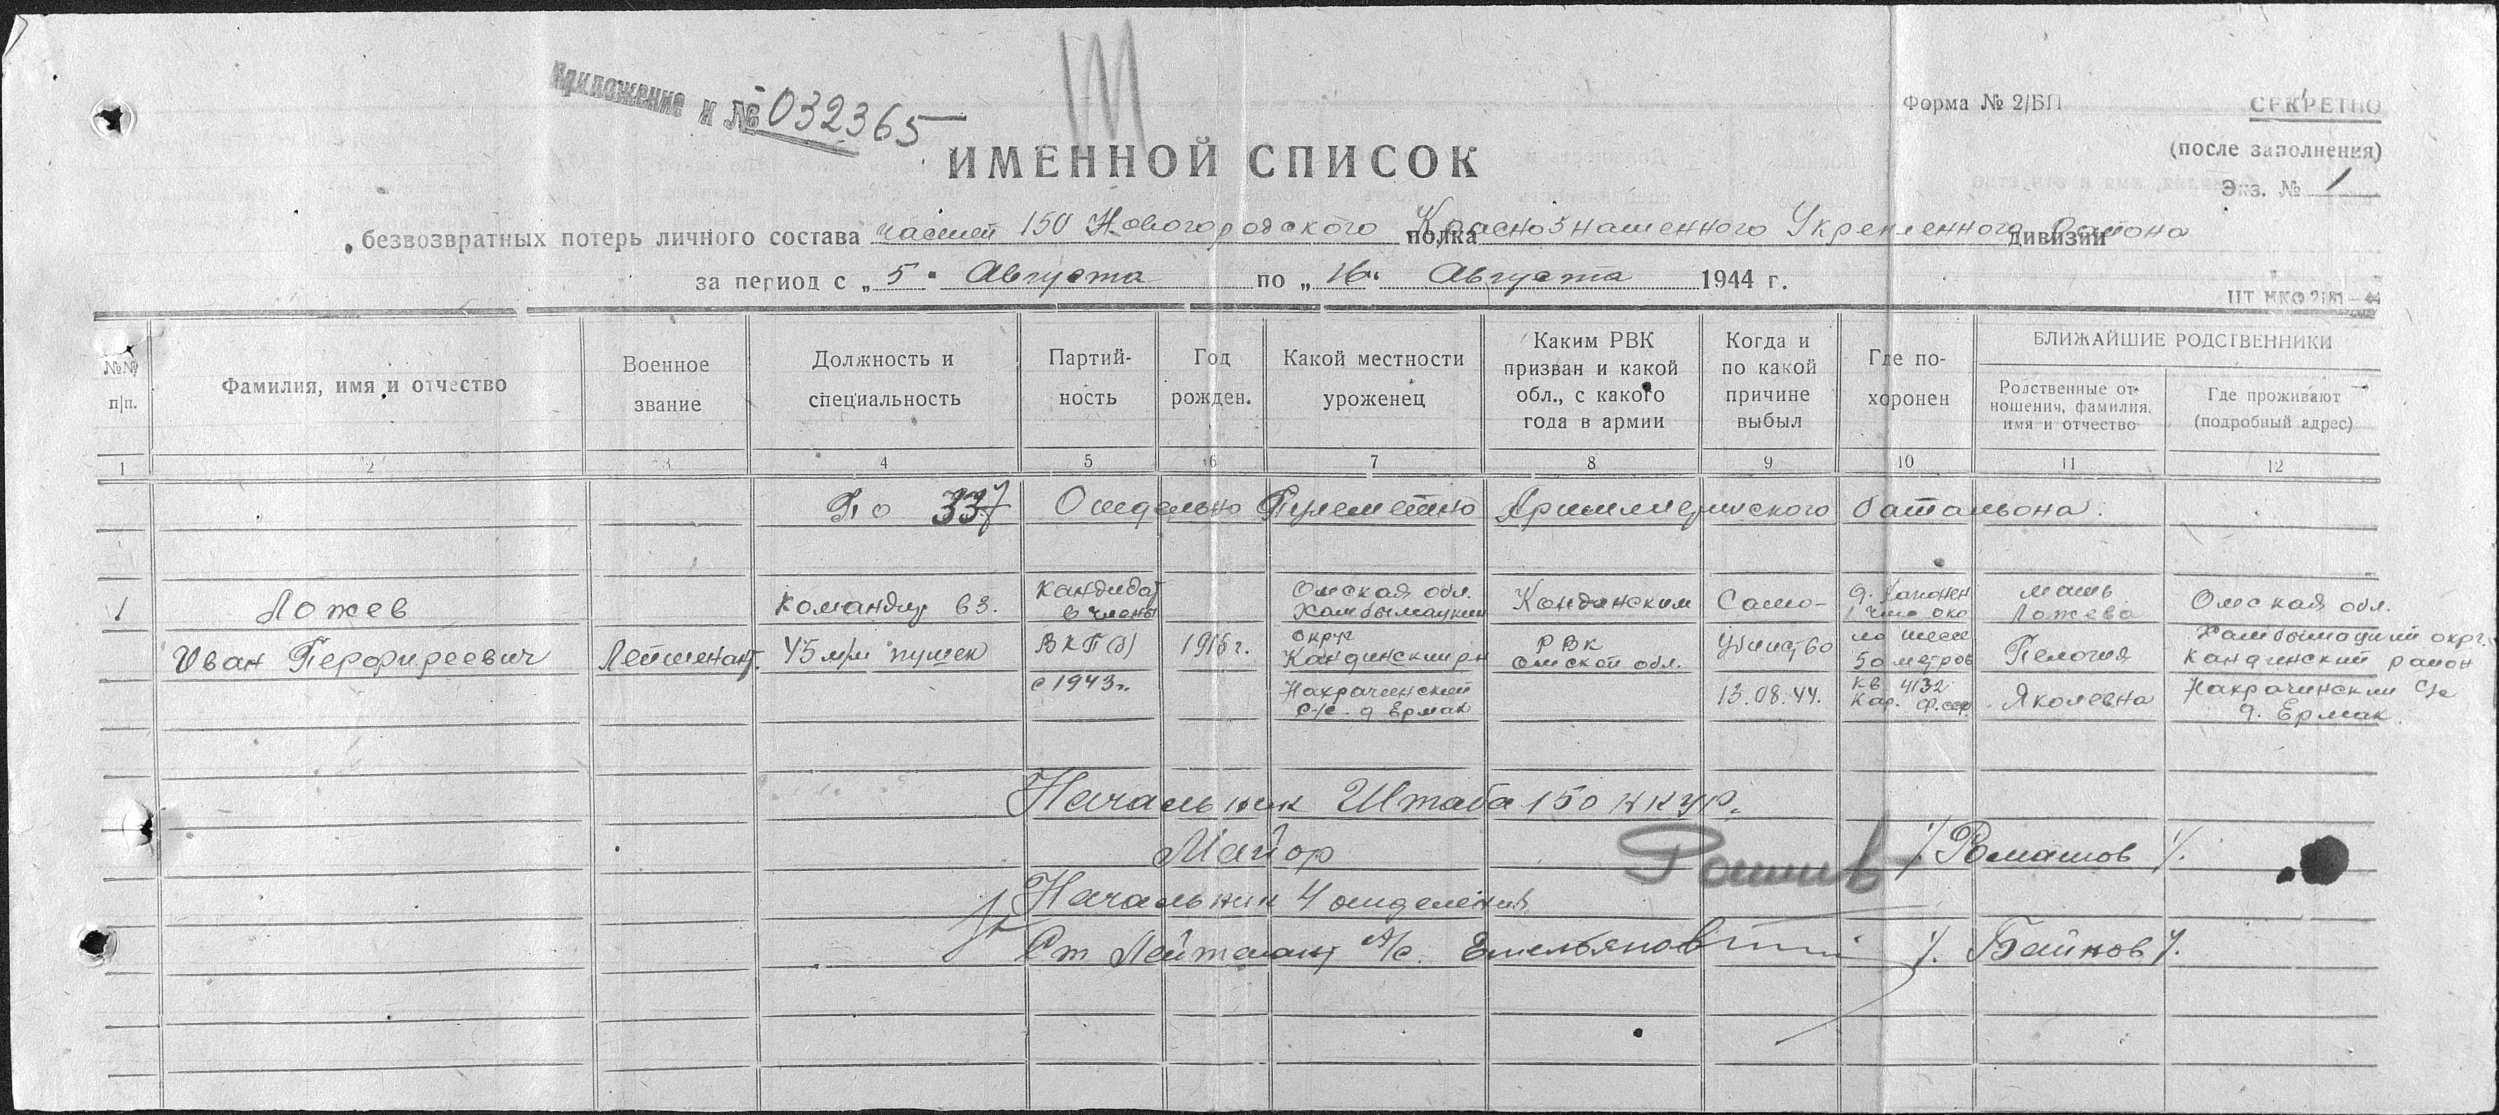 Приложение к № 032365
Форма № 2/БП
СЕКРЕТНО
(после заполнения)
Экз. № 1
ИМЕННОЙ СПИСОК
безвозвратных потерь личного состава частей 150 Новогородского Краснознаменного Укрепленного района полка дивизии
за период с „5" Августа по „16" Августа 1944 г.
№№ п/п.
Фамилия, имя и отчество
Военное звание
Должность и специальность
Партий-ность
Год рожден.
Какой местности уроженец
Каким РВК призван и какой обл., с какого года в армии
Когда и по какой причине выбыл
Где по-хоронен
БЛИЖАЙШИЕ РОДСТВЕННИКИ
Родственные от-ношения, фамилия, имя и отчество
Где проживают (подробный адрес)
1 2 3 4 5 6 7 8 9 10 11 12
По 337 Отдельно Пулеметно Артиллерийского батальона.
1
Ложев
Иван Перфиреевич
Лейтенант.
Командир вз.
45 м/м пушек
Кандидат
в члены
ВКП(б)
с 1943 г.
1916 г.
Омская обл.
Ханты
округ
Кандинский р-н
Нахрачинский
с/с. д Ермак
Кондинским
РВК
Омской обл.
Само-
убийство
13.08.44.
50 метров
кв 4132
мать
Ложева
Пелогия
Яколевна
Омская обл.
округ.
Кандинский район
Нахрачинский с/с
д. Ермак.
Начальник Штаба 150 НКУР.
Майор /Ромашов/.
Начальник 4 отделения
Ст Лейтенант А/с. Емельянов /. Байков /.